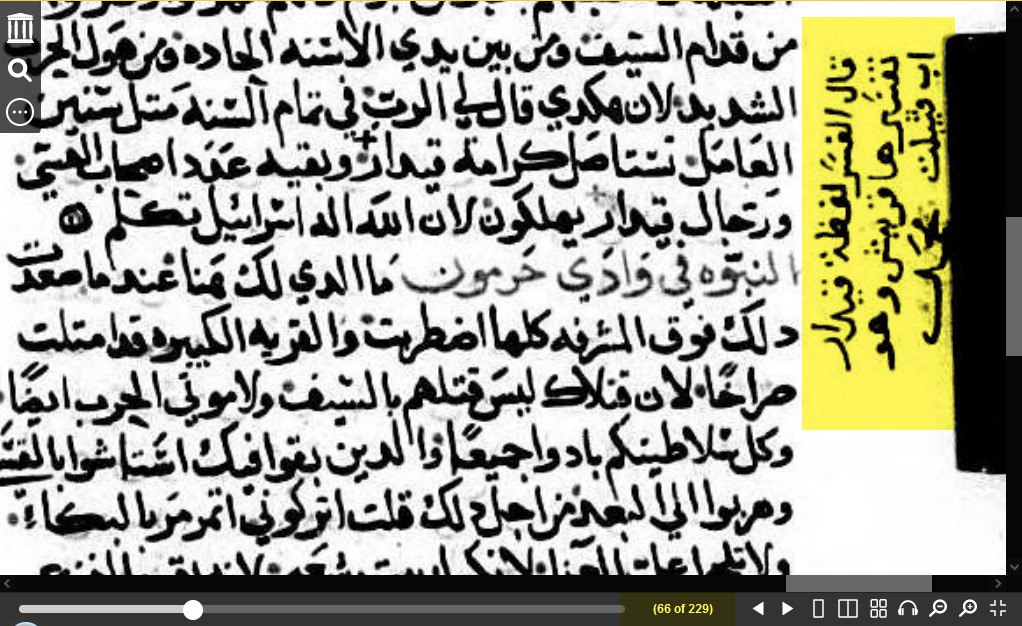 من قدام السيف ومن بين يدي الاسنه الحاده ومن هول الحرب
الشديد لان هكدي قال لي الرب في تمام السنه متل سنين
العامل تستاصل كرامة قيدار وبقيه عدد اصحاب القسي
ورجال قيدار يهلكون لان الله اله اسرائيل تكلم
النبوه في وادي حرمون ما الدي لك هنا عند ما صعدت
دلك فوق المشرفه كلها اضطربت والقريه الكبيره قد امتلت
صراخا لان قتلاك ليس قتلهم بالسيف ولا موتي الحرب ايضا
وكل سلاطينكم بادوا جميعا والدين بقوا فيك
وهربوا الي البعد من اجل دلك قلت اتركوني اتمرمر بالبكاء
قال المفسر لفظة قيدار
تفسيرها قريش وهو
اب قبيلت محمد
(66 of 229)